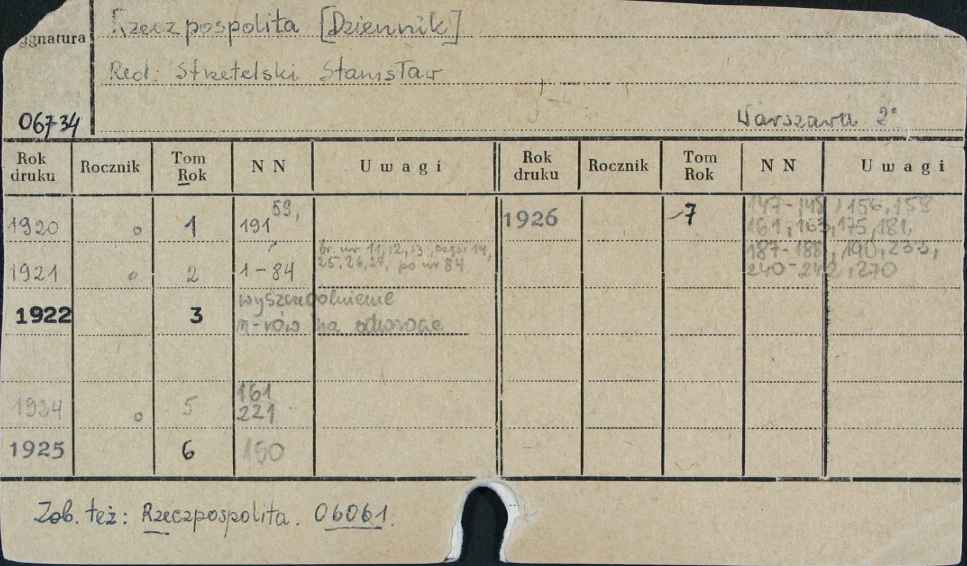 Rzeczpospolita [Dziennik]
Sygnatura
Red: Strzetelski Stanisław
06734
Warszawa 2°
Rok druku Rocznik Tom Rok N N Uwagi Rok druku Rocznik Tom Rok N N Uwagi
1920 o 1 191 59,
1921 o 2 1-84 br. nr 11, 12, 13, 14,
25, 26, 27, po nr 84
1922 3 wyszczególnienie
n-rów na odwrocie
1924 o 5 161
221
1925 6 150
1926 7 147-148, 156, 158
161, 163, 175, 181,
187-188, 190, 233,
240-242, 270
Zob. też: Rzeczpospolita. 06061.